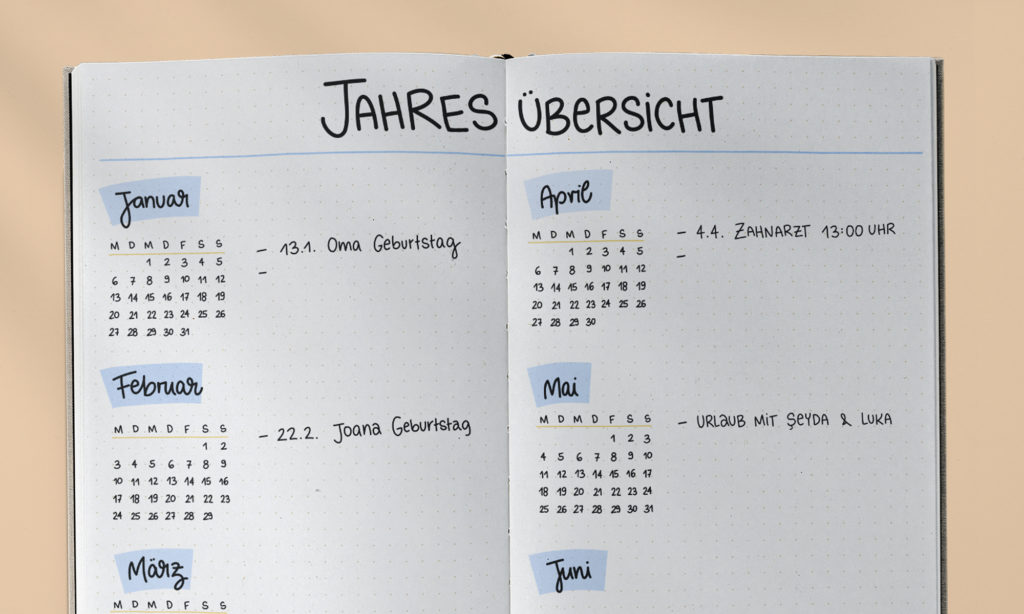 JAHRES ÜBERSICHT
Januar
M D M D F S S
1 2 3 4 5
6 7 8 9 10 11 12
13 14 15 16 17 18 19
20 21 22 23 24 25 26
27 28 29 30 31
– 13.1. Oma Geburtstag
–
Februar
M D M D F S S
1 2
3 4 5 6 7 8 9
10 11 12 13 14 15 16
17 18 19 20 21 22 23
24 25 26 27 28 29
– 22.2. Joana Geburtstag
März
M D M D F S S
April
M D M D F S S
1 2 3 4 5
6 7 8 9 10 11 12
13 14 15 16 17 18 19
20 21 22 23 24 25 26
27 28 29 30
– 4.4. ZAHNARZT 13:00 UHR
–
Mai
M D M D F S S
1 2 3
4 5 6 7 8 9 10
11 12 13 14 15 16 17
18 19 20 21 22 23 24
25 26 27 28 29 30 31
– URLAUB MIT ŞEYDA & LUKA
Juni